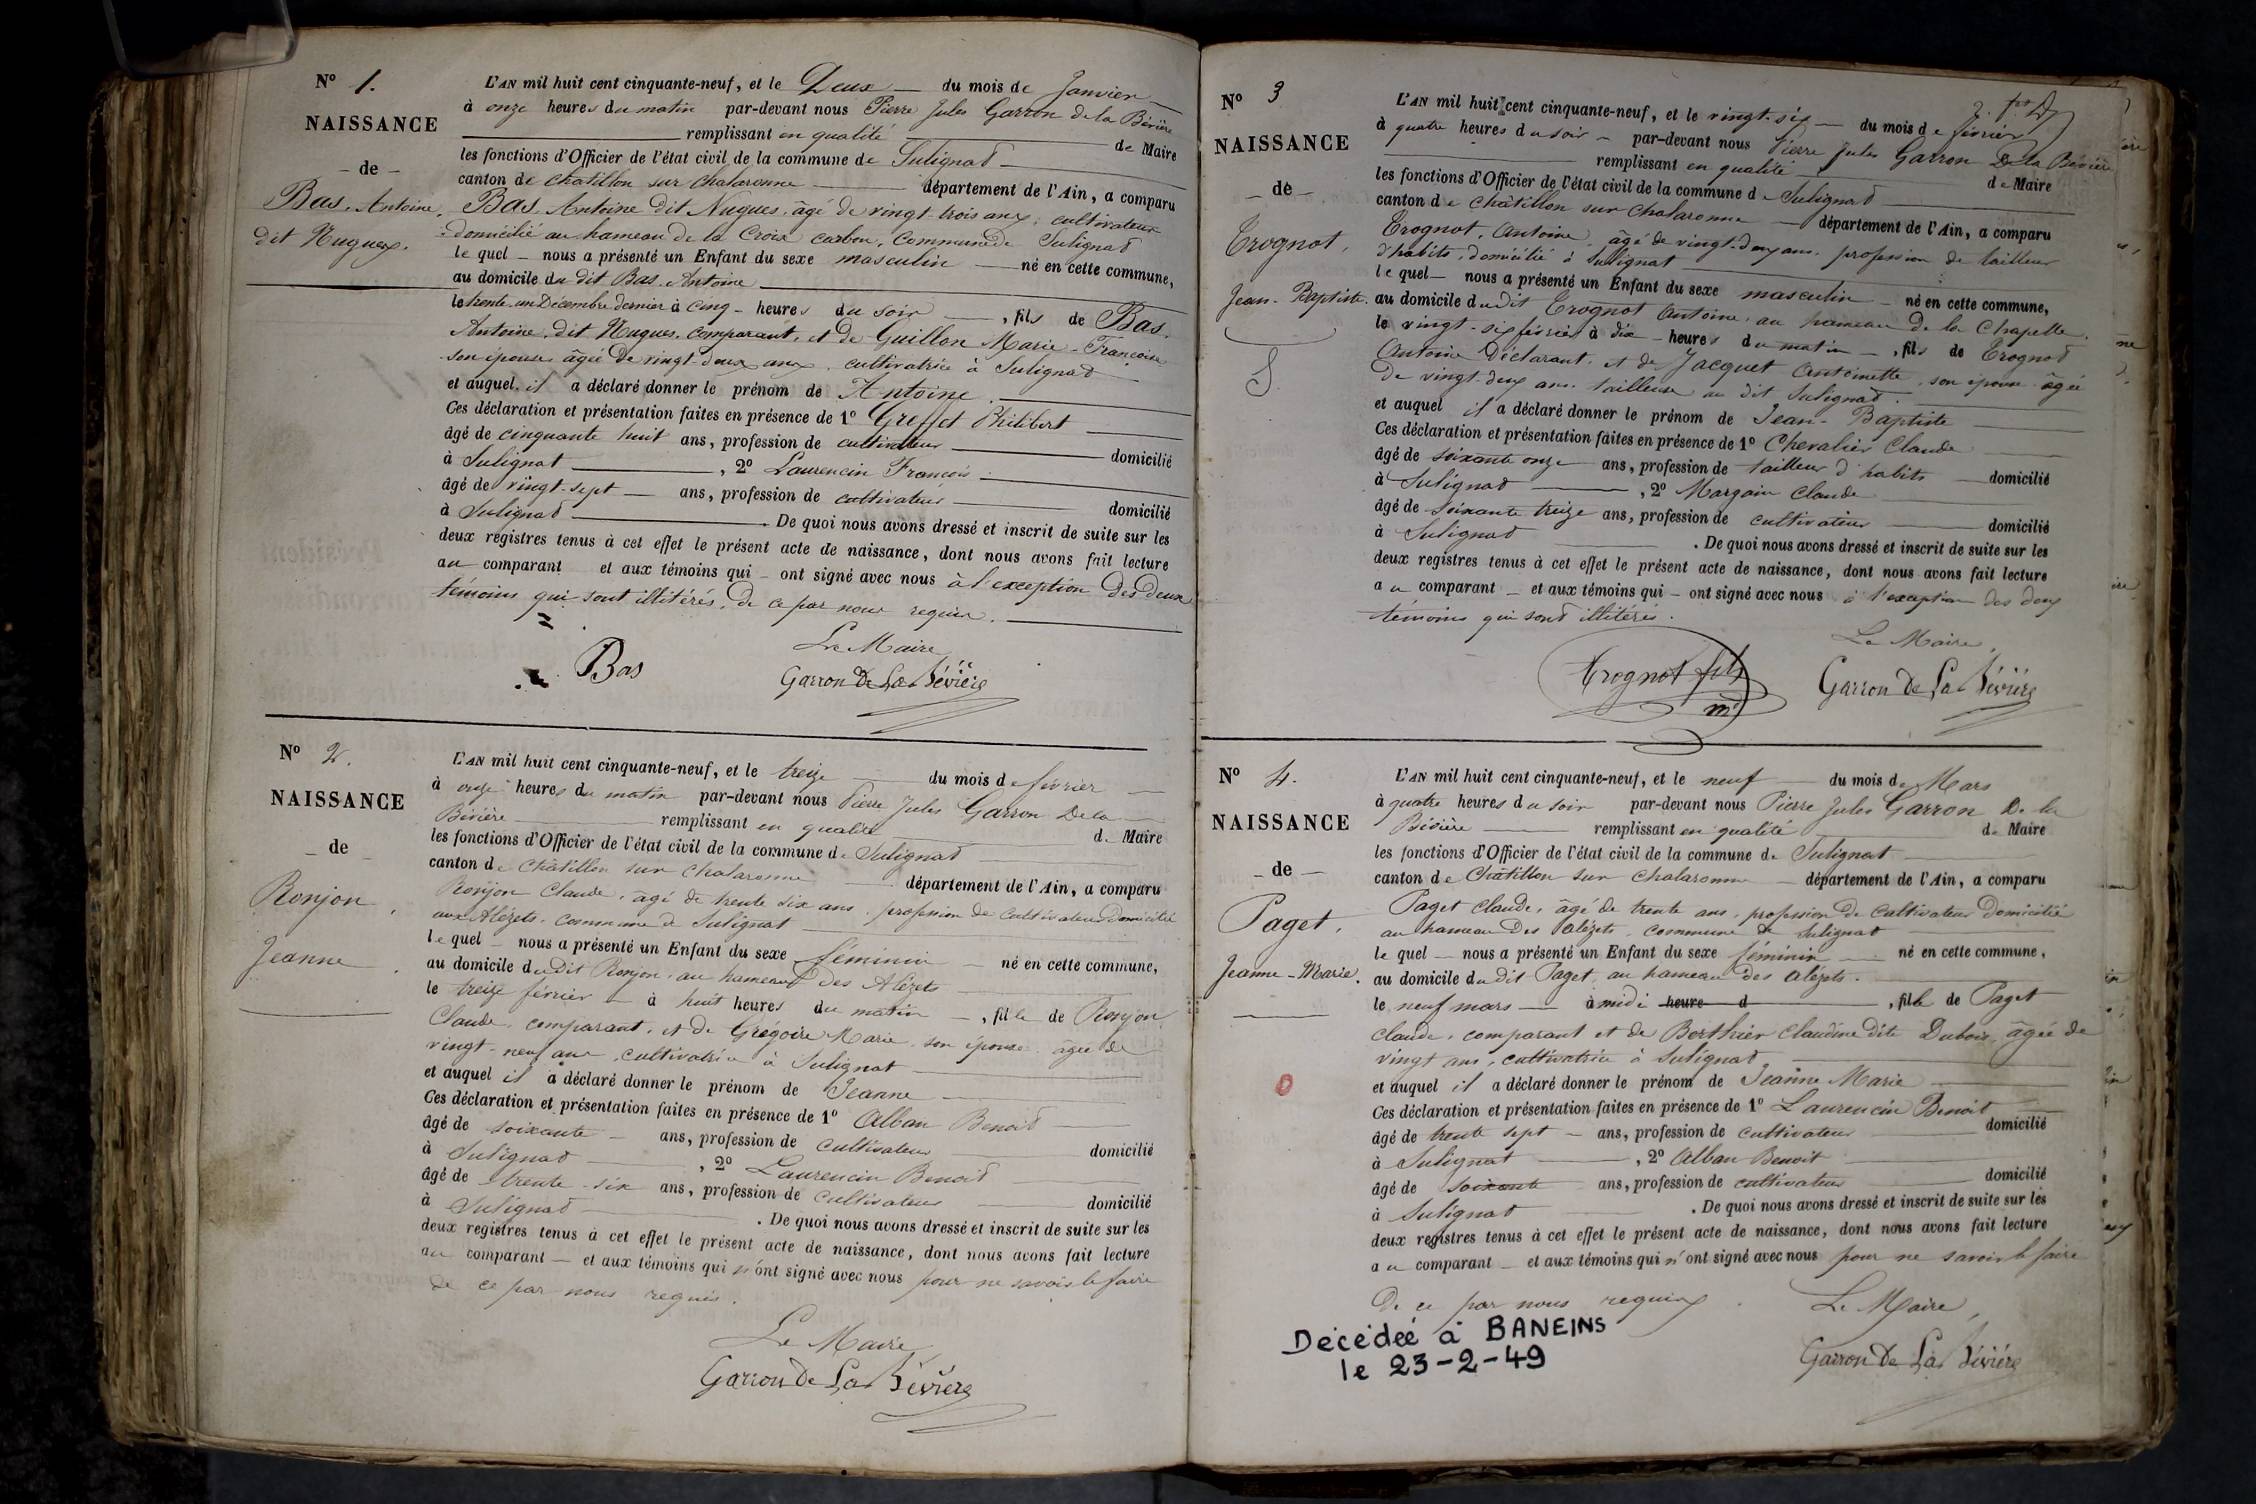 N° 1.
NAISSANCE
de
Bas, Antoine,
dit Nugues.
L'AN mil huit cent cinquante-neuf, et le Deux du mois de Janvier
à onze heures du matin par-devant nous Pierre Jules Garron de la Bévière
remplissant en qualité de Maire
les fonctions d'Officier de l'état civil de la commune de Sulignat
canton de Chatillon sur Chalaronne département de l'Ain, a comparu
Bas, Antoine dit Nugues, âgé de vingt-trois ans, cultivateur
domicilié au hameau de la Croix carbon, Commune de Sulignat
lequel nous a présenté un Enfant du sexe masculin né en cette commune,
au domicile du dit Bas, Antoine
le trente-un Décembre dernier à cinq heures du soir, fils de Bas
Antoine, dit Nugues, comparant, et de Guillon Marie-Françoise
son épouse âgée de vingt-deux ans, cultivatrice à Sulignat
et auquel il a déclaré donner le prénom de Antoine.
Ces déclaration et présentation faites en présence de 1° Greffet Philibert
âgé de cinquante huit ans, profession de cultivateur domicilié
à Sulignat, 2° Laurencin François
âgé de vingt-sept ans, profession de cultivateur domicilié
à Sulignat. De quoi nous avons dressé et inscrit de suite sur les
deux registres tenus à cet effet le présent acte de naissance, dont nous avons fait lecture
au comparant et aux témoins qui ont signé avec nous à l'exception des deux
témoins qui sont illitérés, de ce par nous requis.
Bas
Le Maire
Garron De La Bévière
N° 2.
NAISSANCE
de
Ronjon,
Jeanne
L'AN mil huit cent cinquante-neuf, et le treize du mois de février
à onze heures du matin par-devant nous Pierre Jules Garron De la
Bévière remplissant en qualité de Maire
les fonctions d'Officier de l'état civil de la commune de Sulignat
canton de Châtillon sur Chalaronne département de l'Ain, a comparu
Ronjon Claude, âgé de trente six ans, profession de cultivateur Domicilié
aux Alézets, commune de Sulignat
lequel nous a présenté un Enfant du sexe féminin né en cette commune,
au domicile du dit Ronjon, au hameau des Alézets
le treize février à huit heures du matin, fille de Ronjon
Claude, comparant, et de Grégoire Marie, son épouse âgée de
vingt-neuf ans, cultivatrice à Sulignat
et auquel il a déclaré donner le prénom de Jeanne
Ces déclaration et présentation faites en présence de 1° Alban Benoit
âgé de soixante ans, profession de cultivateur domicilié
à Sulignat, 2° Laurencin Benoit
âgé de trente-six ans, profession de cultivateur domicilié
à Sulignat. De quoi nous avons dressé et inscrit de suite sur les
deux registres tenus à cet effet le présent acte de naissance, dont nous avons fait lecture
au comparant et aux témoins qui n'ont signé avec nous pour ne savoir le faire
de ce par nous requis.
Le Maire
Garron De La Bévière
N° 3
NAISSANCE
de
Trognot,
Jean-Baptiste.
L'AN mil huit cent cinquante-neuf, et le vingt-six du mois de février
à quatre heures du soir par-devant nous Pierre Jules Garron De la Bévière
remplissant en qualité de Maire
les fonctions d'Officier de l'état civil de la commune de Sulignat
canton de Châtillon sur Chalaronne département de l'Ain, a comparu
Trognot, Antoine, âgé de vingt-deux ans, profession de tailleur
d'habits, domicilié à Sulignat
lequel nous a présenté un Enfant du sexe masculin né en cette commune,
au domicile du dit Trognot Antoine, au hameau de la Chapelle
le vingt-six février à dix heures du matin, fils de Trognot
Antoine Déclarant, et de Jacquet Antoinette, son épouse âgée
de vingt-deux ans, tailleuse au dit Sulignat.
et auquel il a déclaré donner le prénom de Jean-Baptiste
Ces déclaration et présentation faites en présence de 1° Chevalier Claude
âgé de soixante onze ans, profession de tailleur d'habits domicilié
à Sulignat, 2° Margain Claude
âgé de soixante treize ans, profession de cultivateur domicilié
à Sulignat. De quoi nous avons dressé et inscrit de suite sur les
deux registres tenus à cet effet le présent acte de naissance, dont nous avons fait lecture
au comparant et aux témoins qui ont signé avec nous à l'exception des deux
témoins qui sont illitérés.
Trognot fils
Le Maire,
Garron De La Bévière
N° 4.
NAISSANCE
de
Paget,
Jeanne-Marie.
L'AN mil huit cent cinquante-neuf, et le neuf du mois de Mars
à quatre heures du soir par-devant nous Pierre Jules Garron De la
Bévière remplissant en qualité de Maire
les fonctions d'Officier de l'état civil de la commune de Sulignat
canton de Châtillon sur Chalaronne département de l'Ain, a comparu
Paget Claude, âgé de trente ans, profession de cultivateur Domicilié
au hameau Des Alézets, commune de Sulignat
lequel nous a présenté un Enfant du sexe féminin né en cette commune,
au domicile du dit Paget, au hameau des Alézets.
le neuf mars à midi heure d, fille de Paget
Claude, comparant et de Berthier Claudine dite Dubois, âgée de
vingt ans, cultivatrice à Sulignat
et auquel il a déclaré donner le prénom de Jeanne Marie
Ces déclaration et présentation faites en présence de 1° Laurencin Benoit
âgé de trente sept ans, profession de cultivateur domicilié
à Sulignat, 2° Alban Benoit
âgé de soixante ans, profession de cultivateur domicilié
à Sulignat. De quoi nous avons dressé et inscrit de suite sur les
deux registres tenus à cet effet le présent acte de naissance, dont nous avons fait lecture
au comparant et aux témoins qui n'ont signé avec nous pour ne savoir le faire
De ce par nous requis.
Le Maire,
Garron De La Bévière
Décédée à BANEINS
le 23-2-49